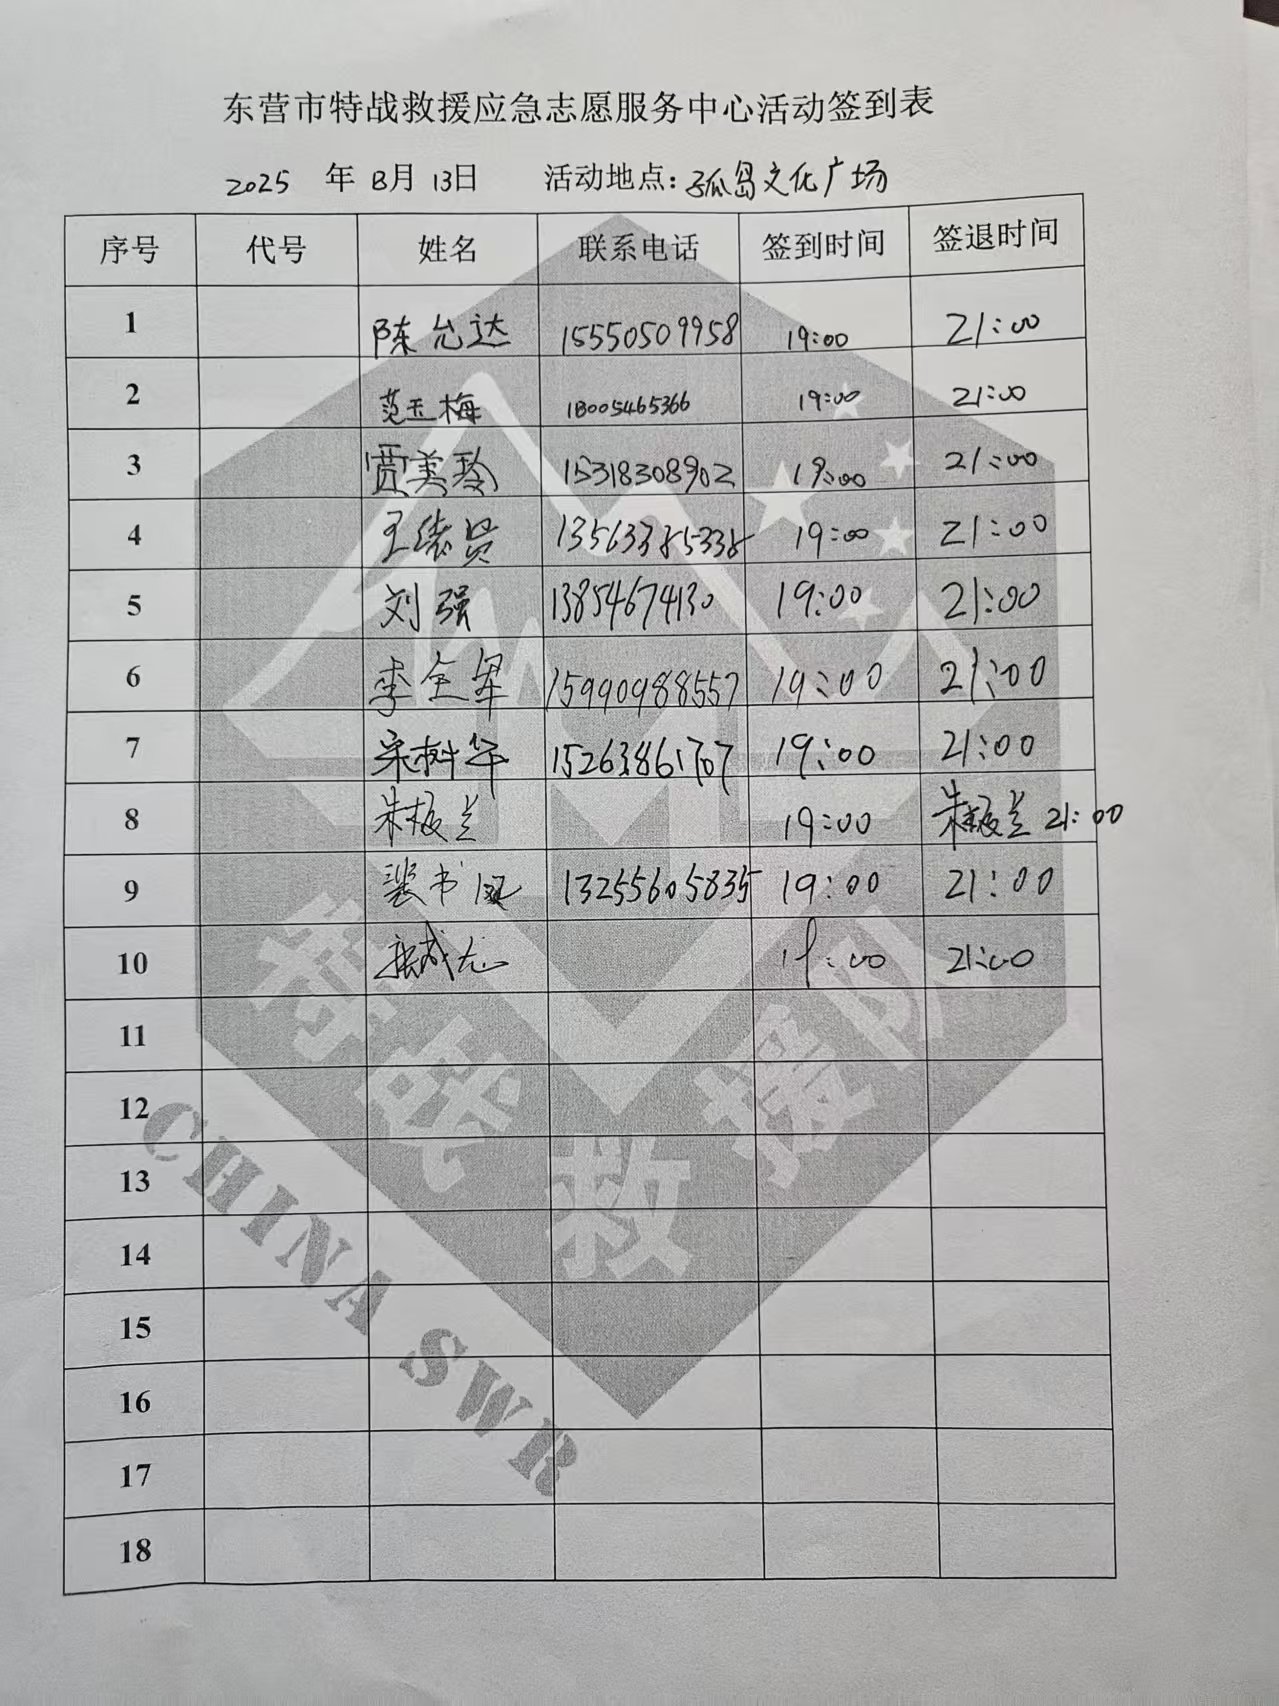 东营市特战救援应急志愿服务中心活动签到表
2025 年 8月 13日 活动地点: 孤岛文化广场
序号 代号 姓名 联系电话 签到时间 签退时间
1 陈允达 15550509958 19:00 21:00
2 范玉梅 18005465366 19:00 21:00
3 贾美玲 15318308902 19:00 21:00
4 王绪贤 13563385338 19:00 21:00
5 刘强 13854674130 19:00 21:00
6 李全军 15990988557 19:00 21:00
7 宋树华 15263861707 19:00 21:00
8 朱振兰 19:00 朱振兰 21:00
9 裴书 13255605835 19:00 21:00
10 19:00 21:00
11
12
13
14
15
16
17
18
特战救援队
CHINA SWR